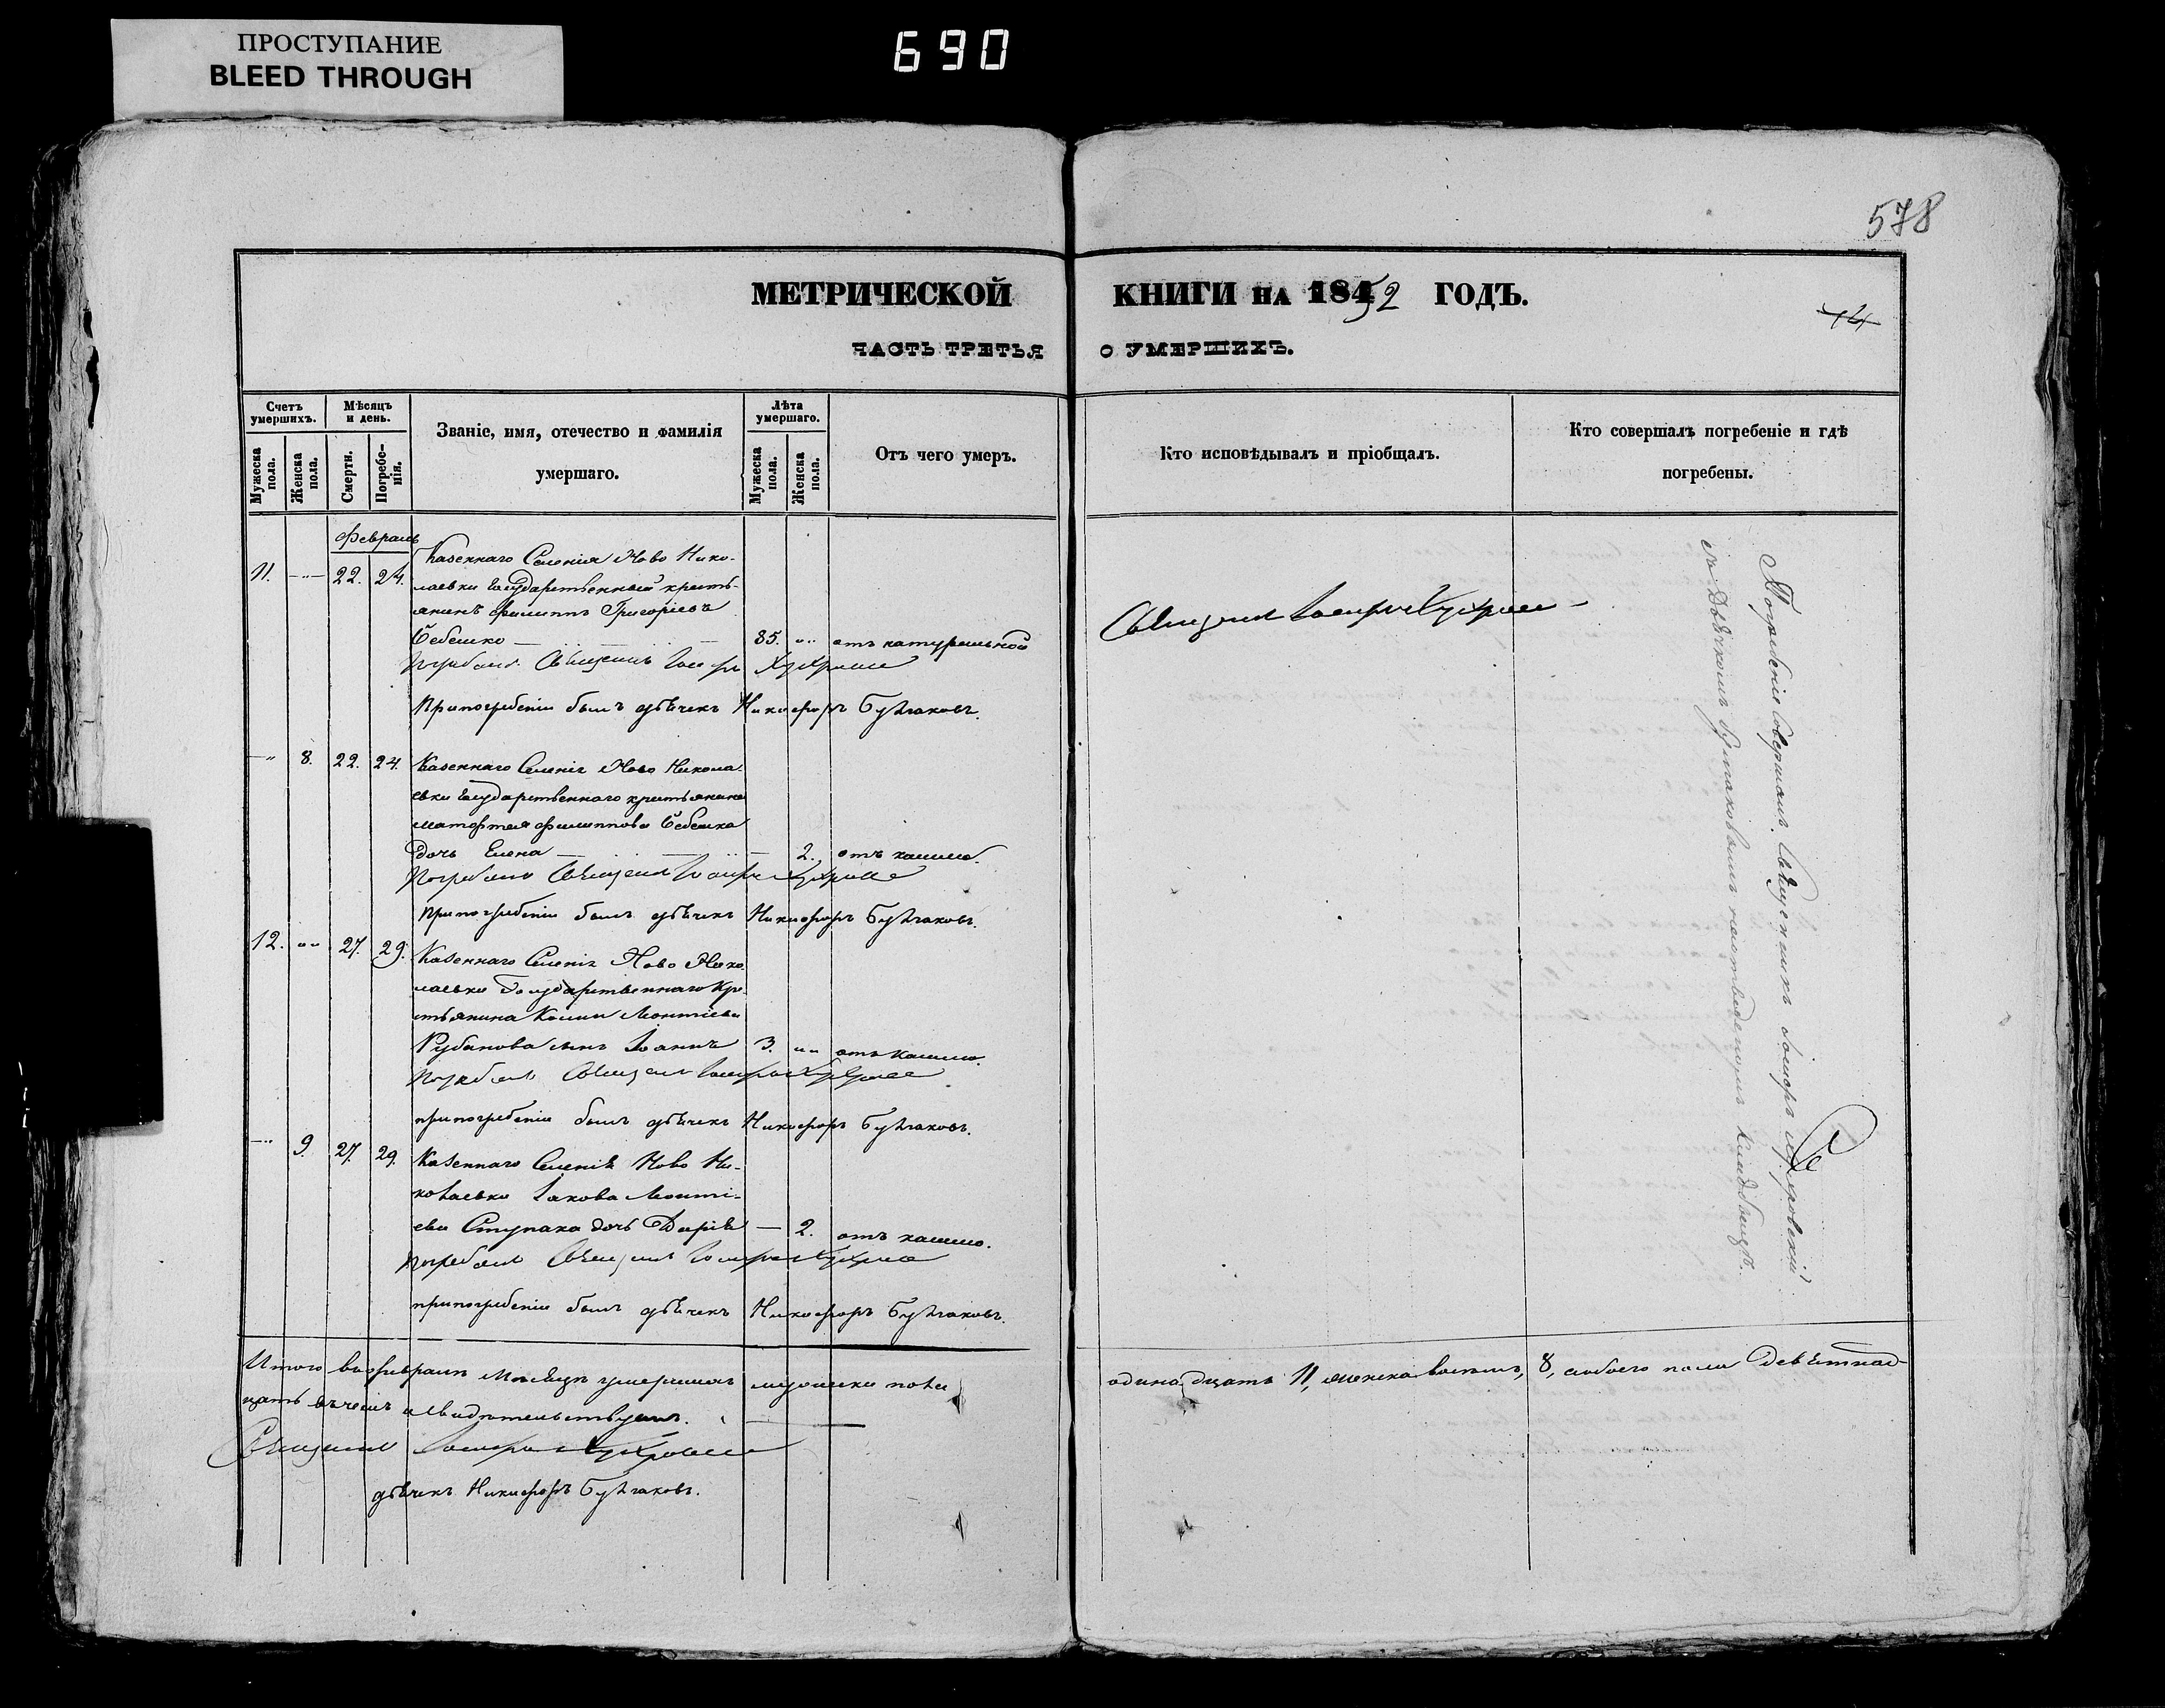 ПРОСТУПАНИЕ
BLEED THROUGH
690
578
МЕТРИЧЕСКОЙ КНИГИ на 1852 ГОДЪ.
14
ЧАСТЬ ТРЕТЬЯ О УМЕРШИХЪ.
Счетъ умершихъ.
Мужеска пола.
Женска пола.
Мѣсяцъ и день.
Смерти.
Погребенія.
Званіе, имя, отечество и фамилія
умершаго.
Лѣта умершаго.
Мужеска пола.
Женска пола.
Отъ чего умеръ.
Кто исповѣдывалъ и пріобщалъ.
Кто совершалъ погребеніе и гдѣ
погребены.
Февраль
Казеннаго Селенія Ново Нико-
11. 22. 24. лаевки Государственный кресть-
янинъ Филиппъ Григоріевъ
Себешко 85. отъ натуральной
Погребалъ Священникъ
При погребеніи былъ дьячекъ Никифоръ Булгаковъ.
8. 22. 24. Казеннаго Селенія Ново Никола
евки Государственнаго крестьянина
Филиппова Себешка
дочь Елена 2. отъ кашлю.
Погребалъ Священникъ
При погребеніи былъ дьячекъ Никифоръ Булгаковъ.
12. 27. 29. Казеннаго Селенія Ново Нико
лаевки Государственнаго Кре
стьянина Леонтіева
Рубанова сынъ Іоаннъ 3. отъ кашлю.
Погребалъ Священникъ
при погребеніи былъ дьячекъ Никифоръ Булгаковъ.
9. 27. 29. Казеннаго Селенія Ново Ни-
колаевки Іакова Леонті-
ева Ступака дочь Дарія 2. отъ кашлю.
Погребалъ Священникъ
при погребеніи былъ дьячекъ Никифоръ Булгаковъ.
Погребеніе совершалъ Священникъ
съ Дьячкомъ Булгаковымъ на приходскомъ кладбищѣ.
Итого въ Февралѣ Мѣсяцѣ умершихъ мужеска пола одинадцать 11, женска восемь, 8, обоего пола Девятнад-
цать въ чемъ и свидѣтельствуемъ.
Священникъ
дьячекъ Никифоръ Булгаковъ.